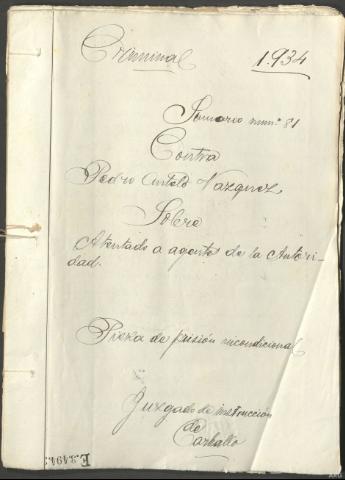 Criminal 1.934
Sumario num.º 81
Contra
Pedro Antelo Vazquez
Sobre
Atentado a agentes de la Autori-
dad.
Pieza de prisión incondicional
Juzgado de instrucción
de
Carballo